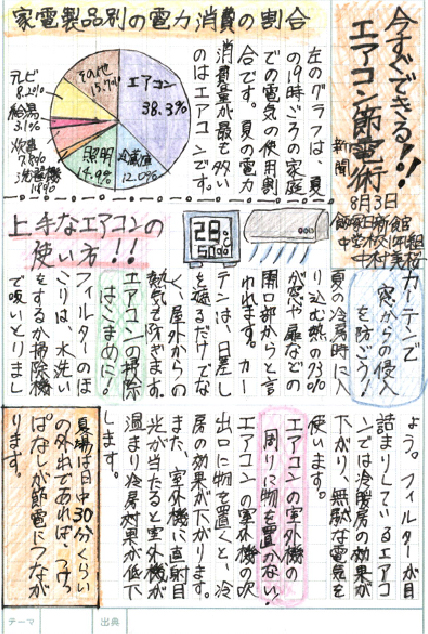 今すぐできる!!
エアコン節電術
新聞
8月3日
家電製品別の電力消費の割合
エアコン
38.3%
冷蔵庫
12.0%
照明
14.9%
その他
15.7%
テレビ
8.2%
給湯
3.1%
炊事
7.8%
洗濯機
左のグラフは、夏
の19時ごろの家庭
での電気の使用割
合です。夏の電力
消費量が最も多い
のはエアコンです。
上手なエアコンの
使い方!!
28
50
カーテンで
窓からの侵入
を防ごう!
夏の冷房時に入
り込む熱の73%
が窓や扉などの
開口部からと言
われます。カー
テンは、日差し
を遮るだけでな
く、屋外からの
熱気を防ぎます。
エアコンの掃除
はこまめに!
フィルターのほ
こりは、水洗い
をするか掃除機
で吸いとりまし
ょう。フィルターが目
詰まりしているエアコ
ンでは冷暖房の効果が
下がり、無駄な電気を
使います。
エアコンの室外機の
周りに物を置かない!
エアコンの室外機の吹
出口に物を置くと、冷
房の効果が下がります。
また、室外機に直射日
光が当たると室外機が
温まり冷房効果が低下
します。
夏場は日中30分くらい
の外出であれば、つけっ
ぱなしが節電につなが
ります。
テーマ
出典